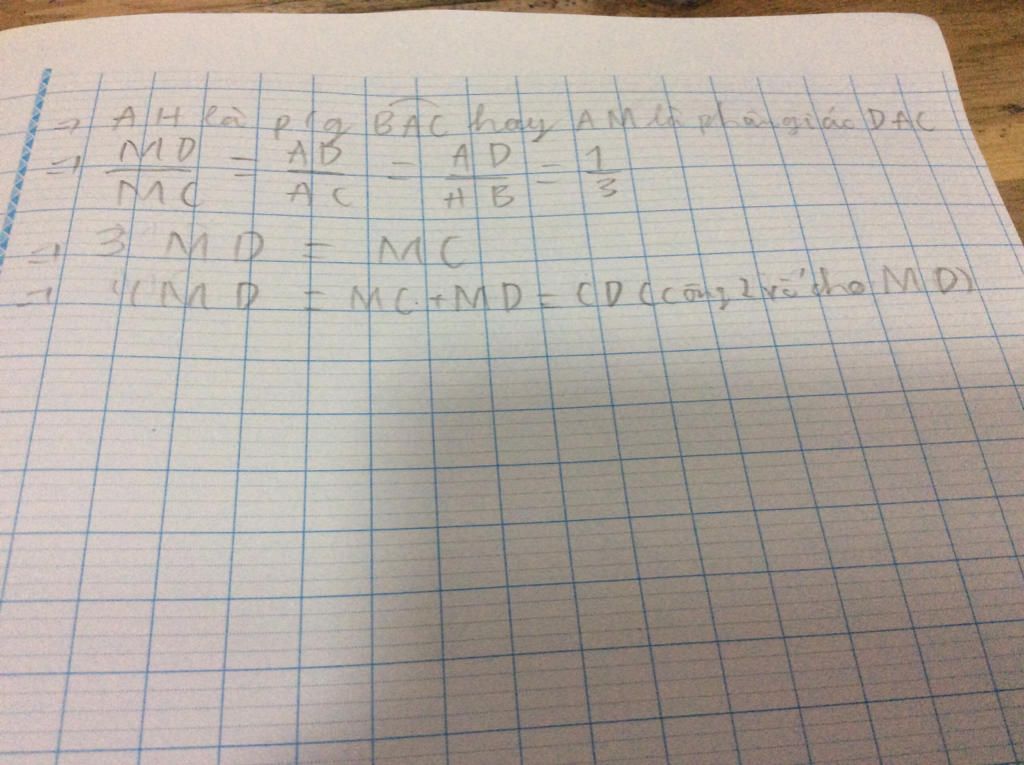 ⇒ AH là p/g BAC hay AM là phân giác DAC
⇒ MD/MC = AD/AC = AD/AB = 1/3
⇒ 3 MD = MC
⇒ 4 MD = MC + MD = CD (cộng 2 vế cho MD)